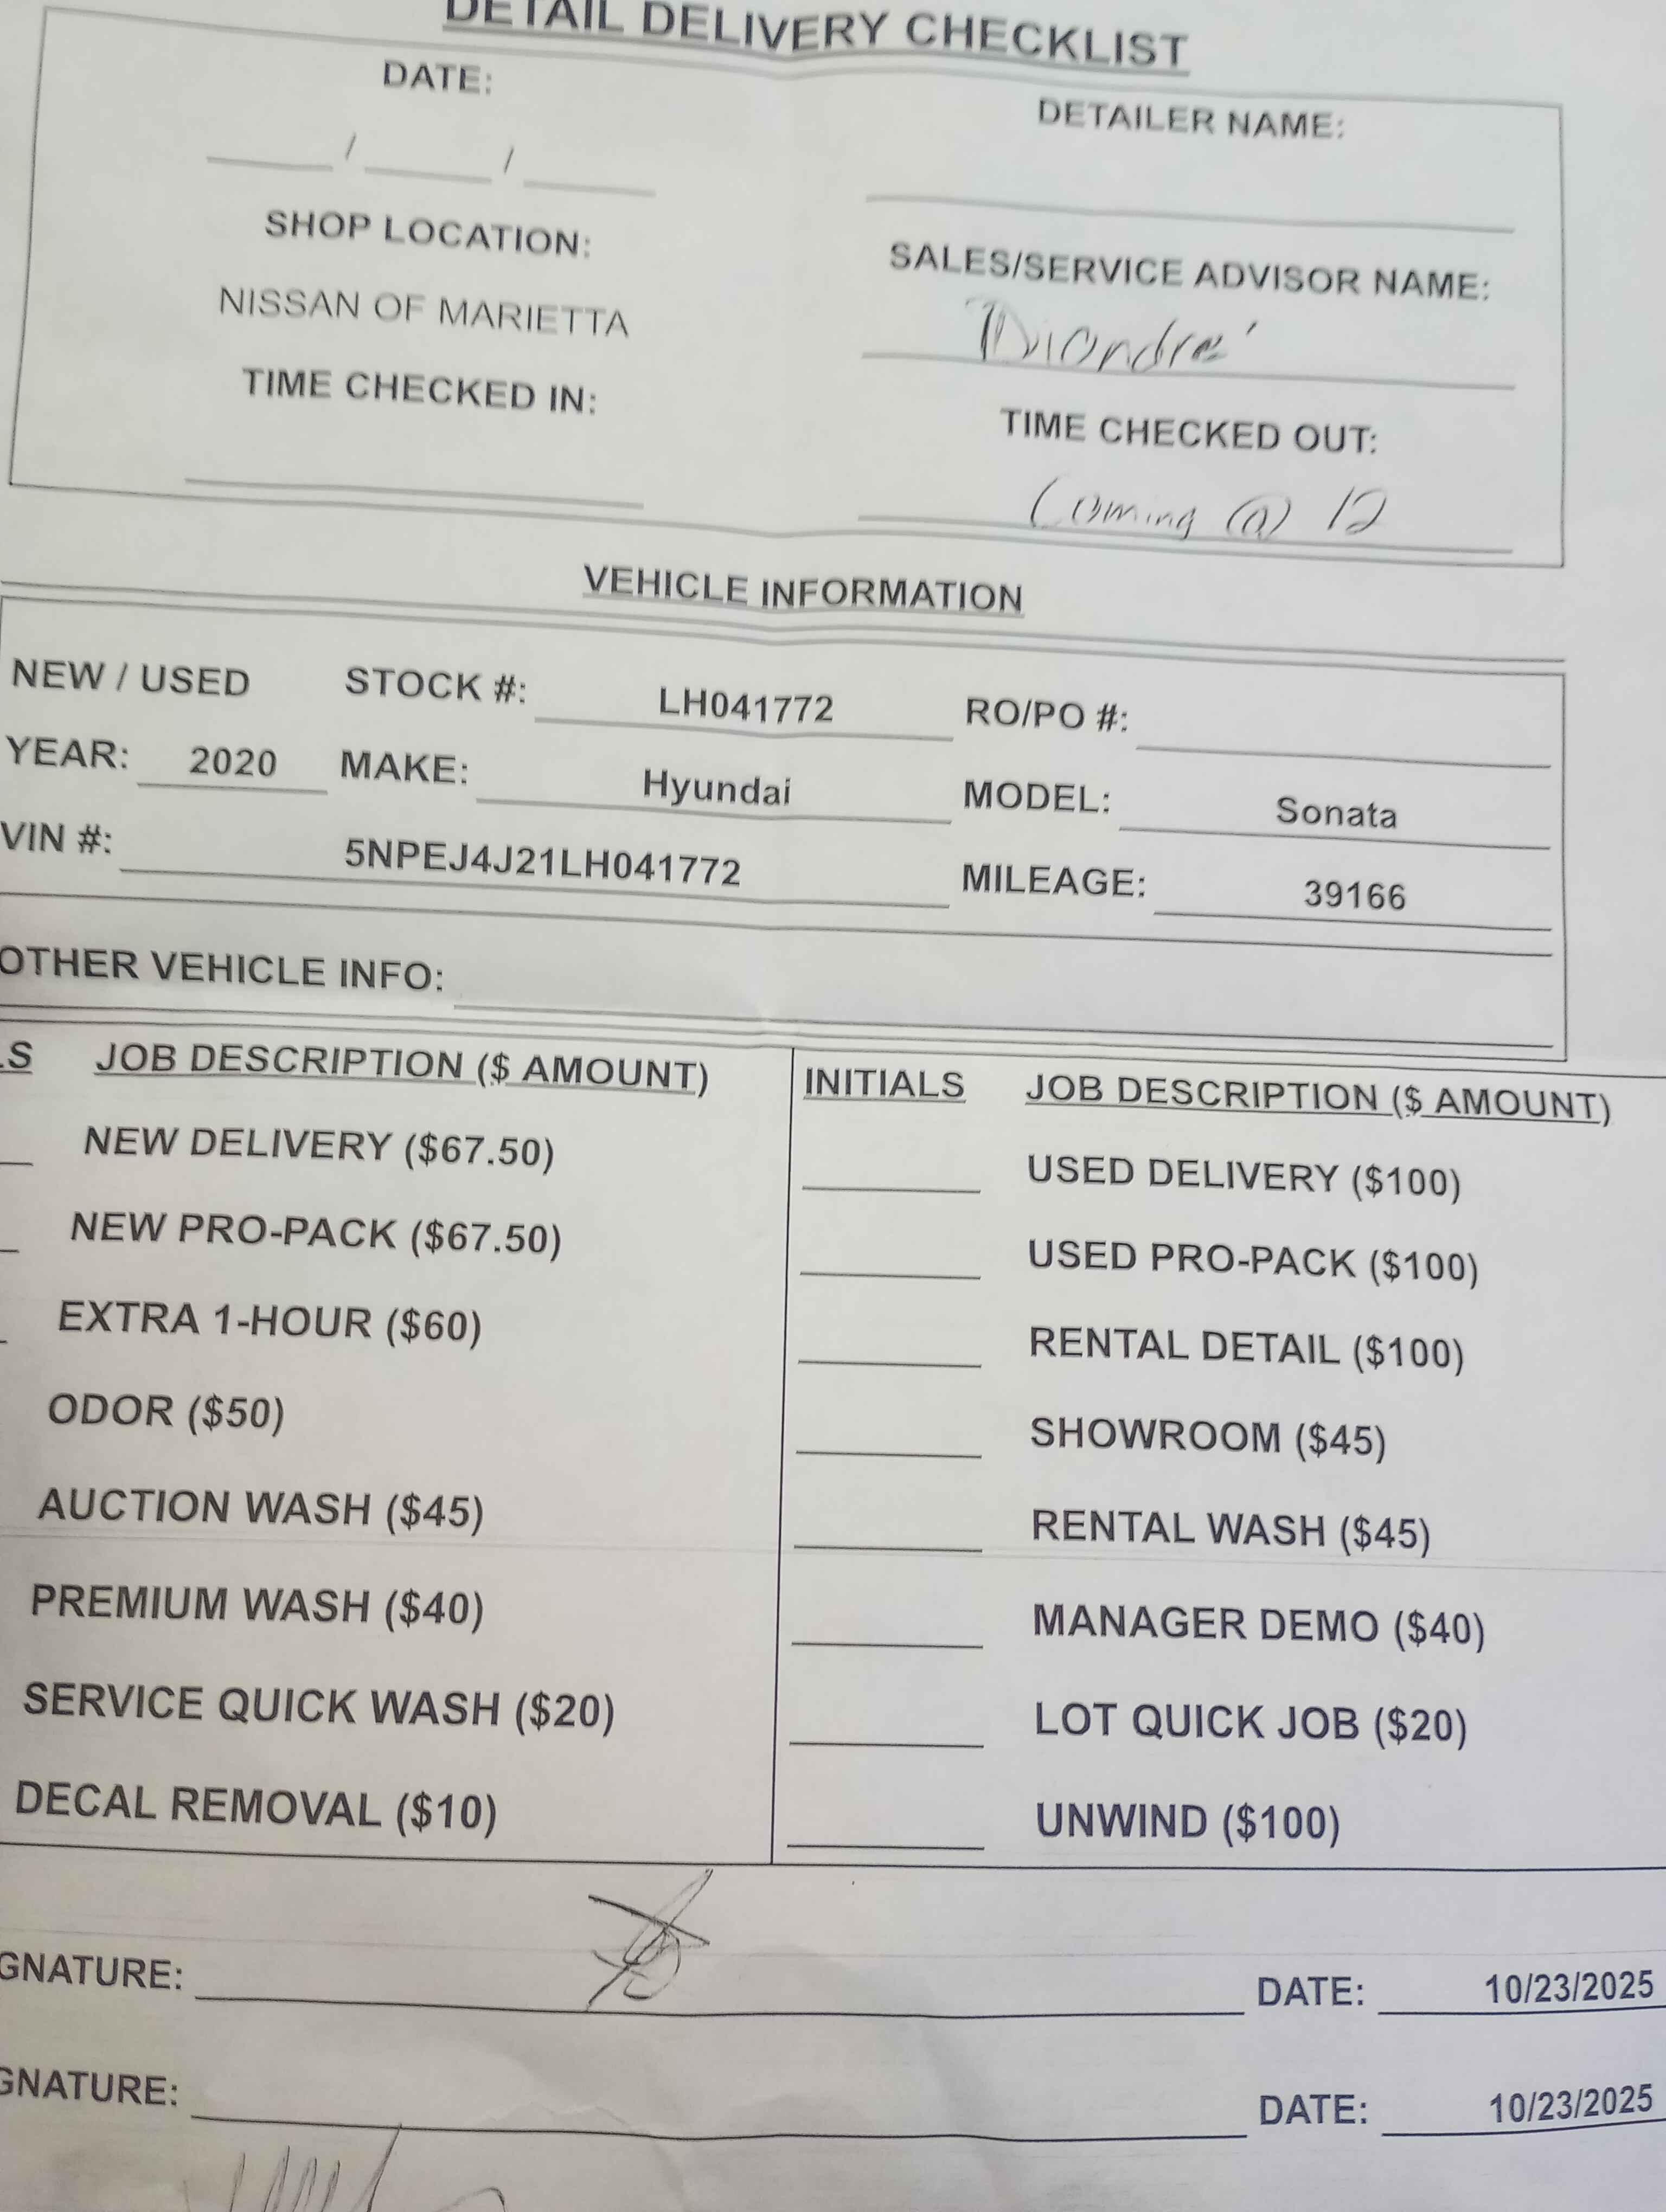 DETAIL DELIVERY CHECKLIST
DATE:
DETAILER NAME:
/ /
SHOP LOCATION:
SALES/SERVICE ADVISOR NAME:
NISSAN OF MARIETTA
Diondre'
TIME CHECKED IN:
TIME CHECKED OUT:
Coming @ 12
VEHICLE INFORMATION
NEW / USED STOCK #: LH041772 RO/PO #:
YEAR: 2020 MAKE: Hyundai MODEL: Sonata
VIN #: 5NPEJ4J21LH041772 MILEAGE: 39166
OTHER VEHICLE INFO:
LS JOB DESCRIPTION ($ AMOUNT) INITIALS JOB DESCRIPTION ($ AMOUNT)
NEW DELIVERY ($67.50) USED DELIVERY ($100)
NEW PRO-PACK ($67.50) USED PRO-PACK ($100)
EXTRA 1-HOUR ($60) RENTAL DETAIL ($100)
ODOR ($50) SHOWROOM ($45)
AUCTION WASH ($45) RENTAL WASH ($45)
PREMIUM WASH ($40) MANAGER DEMO ($40)
SERVICE QUICK WASH ($20) LOT QUICK JOB ($20)
DECAL REMOVAL ($10) UNWIND ($100)
GNATURE: DATE: 10/23/2025
GNATURE: DATE: 10/23/2025